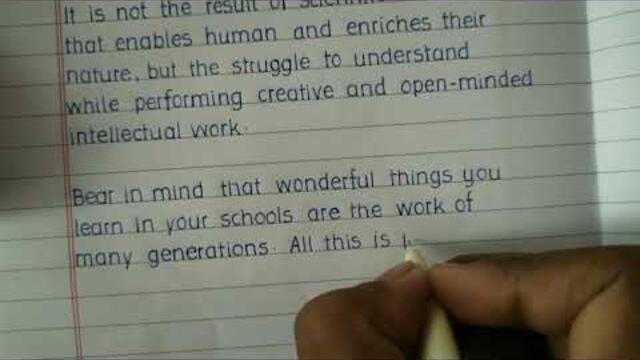 It is not the result of
that enables human and enriches their
nature, but the struggle to understand
while performing creative and open-minded
intellectual work.
Bear in mind that wonderful things you
learn in your schools are the work of
many generations. All this is